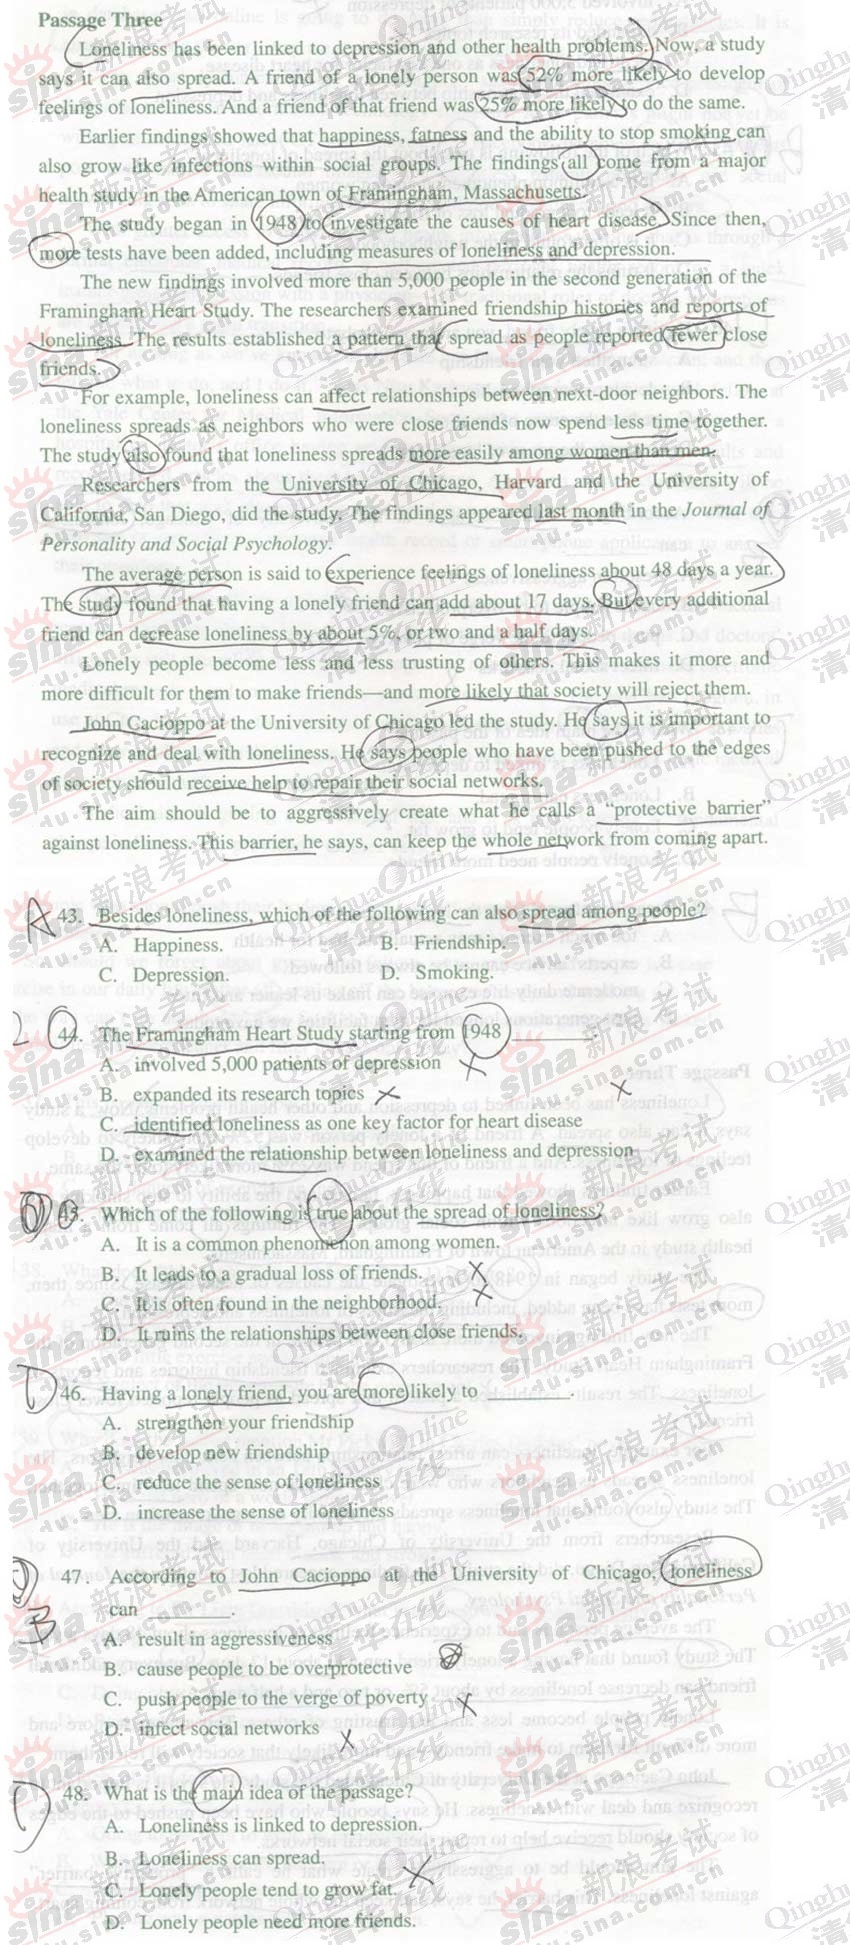 Passage Three
Loneliness has been linked to depression and other health problems. Now, a study
says it can also spread. A friend of a lonely person was 52% more likely to develop
feelings of loneliness. And a friend of that friend was 25% more likely to do the same.
Earlier findings showed that happiness, fatness and the ability to stop smoking can
also grow like infections within social groups. The findings all come from a major
health study in the American town of Framingham, Massachusetts.
The study began in 1948 to investigate the causes of heart disease. Since then,
more tests have been added, including measures of loneliness and depression.
The new findings involved more than 5,000 people in the second generation of the
Framingham Heart Study. The researchers examined friendship histories and reports of
loneliness. The results established a pattern that spread as people reported fewer close
friends.
For example, loneliness can affect relationships between next-door neighbors. The
loneliness spreads as neighbors who were close friends now spend less time together.
The study also found that loneliness spreads more easily among women than men.
Researchers from the University of Chicago, Harvard and the University of
California, San Diego, did the study. The findings appeared last month in the Journal of
Personality and Social Psychology.
The average person is said to experience feelings of loneliness about 48 days a year.
The study found that having a lonely friend can add about 17 days. But every additional
friend can decrease loneliness by about 5%, or two and a half days.
Lonely people become less and less trusting of others. This makes it more and
more difficult for them to make friends—and more likely that society will reject them.
John Cacioppo at the University of Chicago led the study. He says it is important to
recognize and deal with loneliness. He says people who have been pushed to the edges
of society should receive help to repair their social networks.
The aim should be to aggressively create what he calls a “protective barrier”
against loneliness. This barrier, he says, can keep the whole network from coming apart.
A 43. Besides loneliness, which of the following can also spread among people?
A. Happiness. B. Friendship.
C. Depression. D. Smoking.
44. The Framingham Heart Study starting from 1948 ________.
A. involved 5,000 patients of depression
B. expanded its research topics
C. identified loneliness as one key factor for heart disease
D. examined the relationship between loneliness and depression
45. Which of the following is true about the spread of loneliness?
A. It is a common phenomenon among women.
B. It leads to a gradual loss of friends.
C. It is often found in the neighborhood.
D. It ruins the relationships between close friends.
D 46. Having a lonely friend, you are more likely to ________.
A. strengthen your friendship
B. develop new friendship
C. reduce the sense of loneliness
D. increase the sense of loneliness
47. According to John Cacioppo at the University of Chicago, loneliness
can ________.
B
A. result in aggressiveness
B. cause people to be overprotective
C. push people to the verge of poverty
D. infect social networks
D 48. What is the main idea of the passage?
A. Loneliness is linked to depression.
B. Loneliness can spread.
C. Lonely people tend to grow fat.
D. Lonely people need more friends.
sina 新浪考试
edu.sina.com.cn
Qinghua Online
清华在线